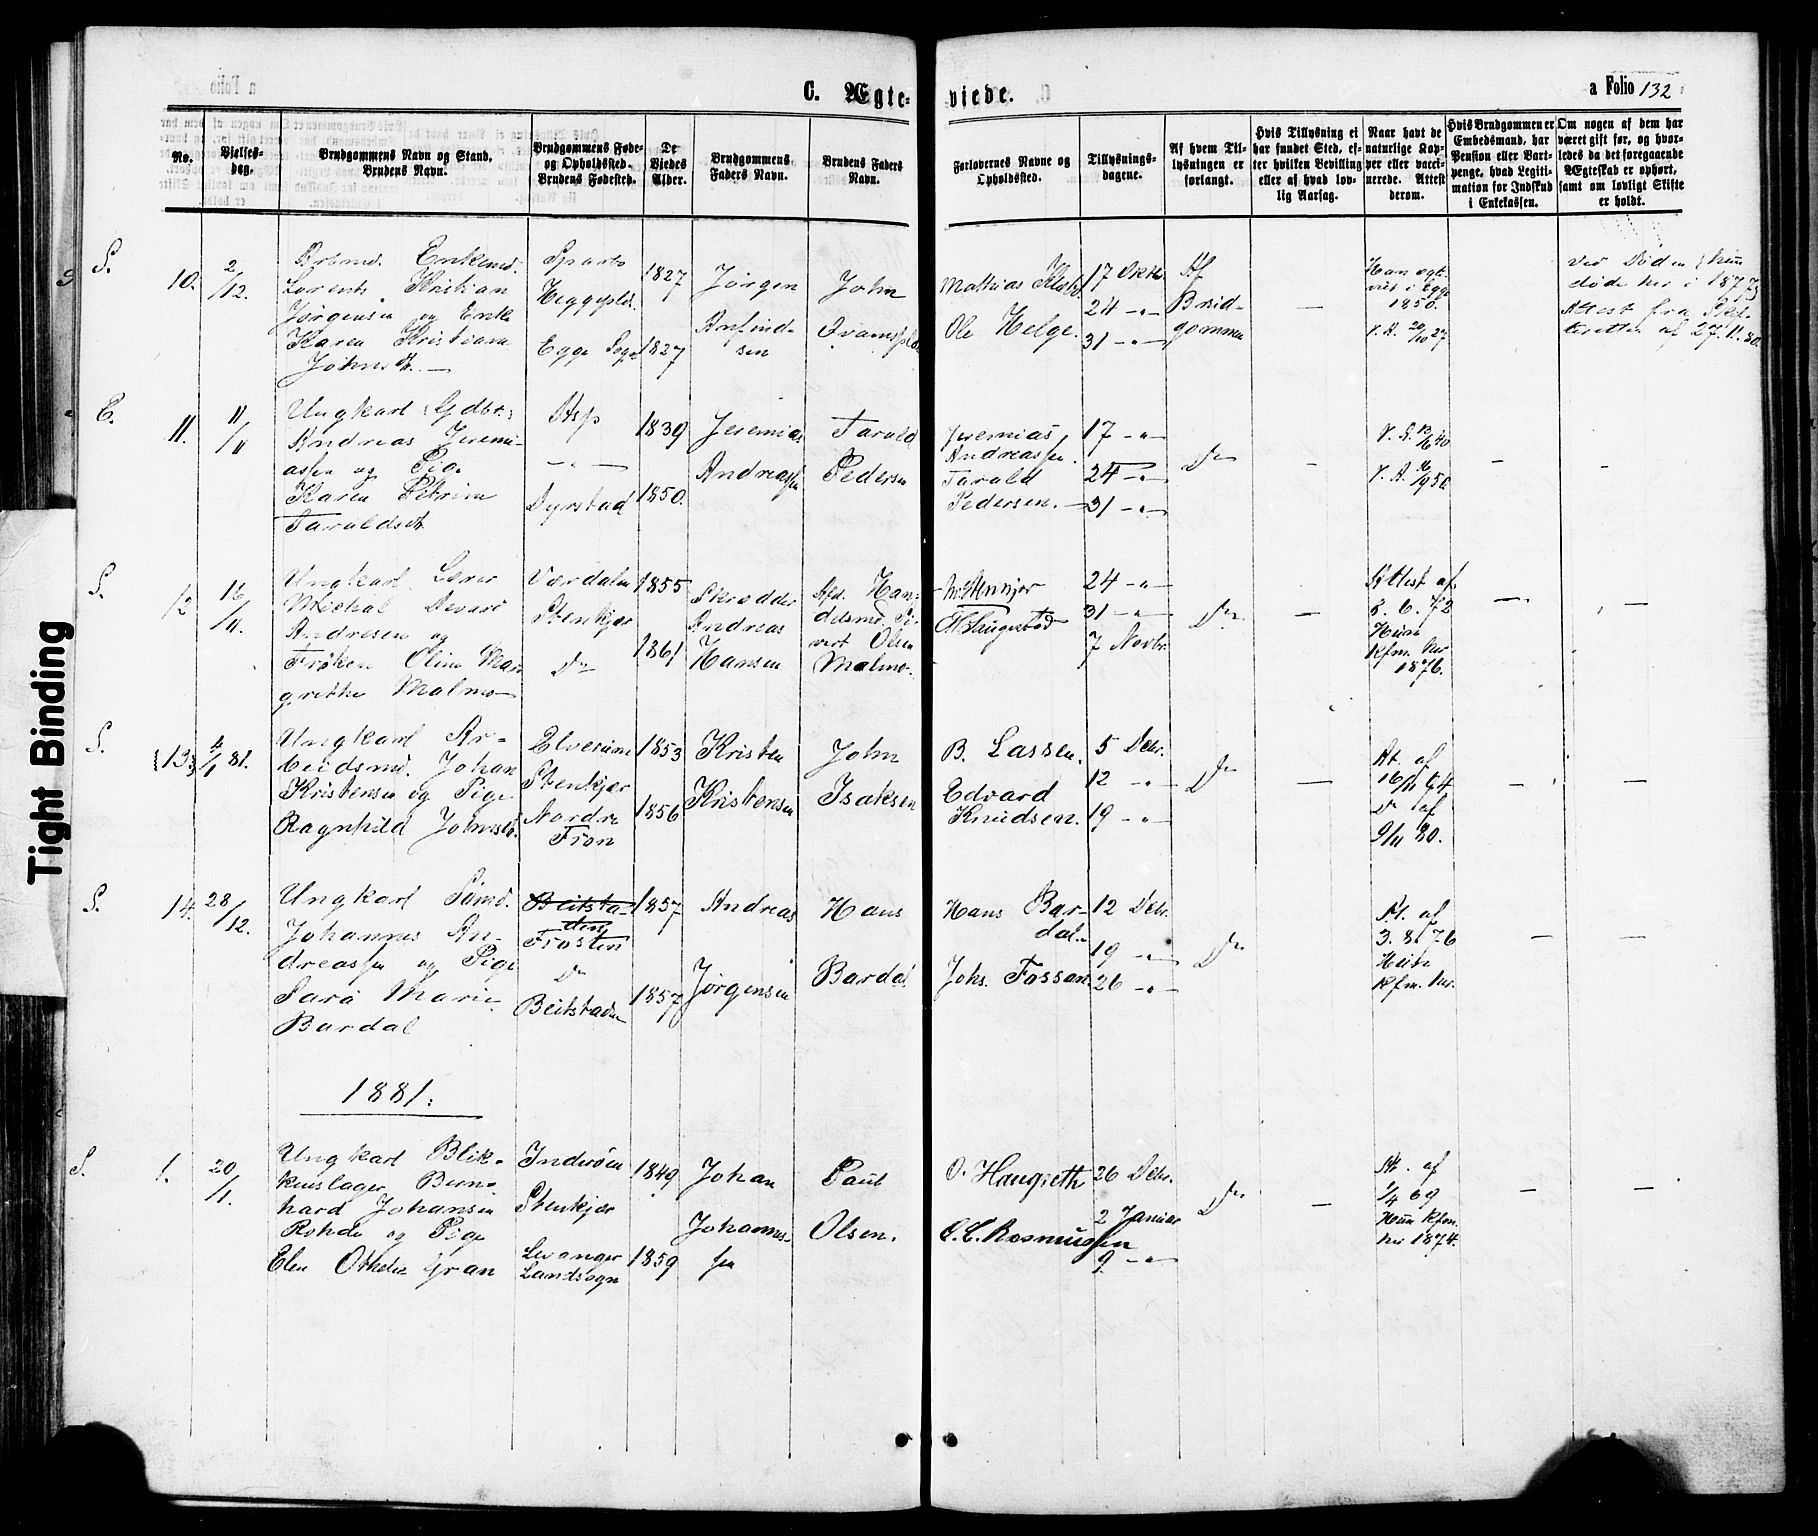 C. Ægte-
viede.
a Folio 132
No.
Vielses-
dag.
Brudgommens Navn og Stand.
Brudens Navn.
Brudgommens Føde-
og Opholdssted.
Brudens Fødested.
De
Viedes
Alder.
Brudgommens
Faders Navn.
Brudens Faders
Navn.
Forlovernes Navne og
Opholdssted.
Tillysnings-
dagene.
Af hvem Til-
lysningen er
forlangt.
Hvis Tillysning ei
har fundet Sted, ef-
ter hvilken Bevilling
eller af hvad lov-
lig Aarsag.
Naar havt de
naturlige Kop-
per eller vacci-
nerede. Attest
derom.
Hvis Brudgommen er
Embedsmand, har
Pension eller Vart-
penge, hvad Legiti-
mation for Indskud
i Enkekassen.
Om nogen af dem har
været gift før, og hvor-
ledes da det foregaaende
Ægteskab er ophørt,
samt om lovligt Skifte
er holdt.
S.
10.
2/12.
Enkemd.
Lorents Kristian
Jørgensen og Enke
Karen Kristiane
Johnsdt. —
Sparbo
Egge Sogn
1827
1827
Jørgen
Arfind-
sen
John
Mathias
Ole Helge.
17 Oktb.
24 -"-
31 -"-
Af
Brud-
gommen
—
Han vgt.
vis i Egge
1850.
V. A. 20/10 27
ved Døden (hun
døde her i 1877)
Attest fra Skif-
teretten af 27.11.80.
E.
11.
11/11
Ungkarl (Gdbr.)
Andreas Jeremi-
assen og Pige
Karen Petrine
Taraldsdt.
Asp
-"-
Dyrstad
1839
1850.
Jeremias
Andreassen
Tarald
Pedersen
Jeremias
Andreassen.
Tarald
Pedersen. —
17 -"-
24 -"-
31 -"-
Do
S.
12
16/11.
Ungkarl Lærer
Michal Devaro
Andresen og
Frøken Oline Mar-
grethe Malmo
Værdalen
Stenkjær
Do
1855
1861
Skrædder
Andreas
Hansen
Afd. Han-
delsmd. Si-
vert Olsen
Malmo.
24 -"-
31 -"-
7 Novbr.
Do
Attest af
8. 6. 72
Hun
Kfm. her
1876.
S.
13
4/1 81.
Ungkarl Ar-
beidsmd. Johan
Kristensen og Pige
Ragnhild Johnsdt.
Elverum
Stenkjær
Nordre
Fron
1853
1856
Kristen
Kristensen
John
Isaksen
B. Lassen.
Edvard
Knudsen.
5 Debr.
12 -"-
19 -"-
Do
At. af
16/11 64
Do af
9/11 80.
S.
14.
28/12.
Ungkarl Sømd.
Johannes An-
dreassen og Pige
Sara Marie
Bardal
Beitsta-
den
Frosten
Do
Beitstaden
1857
1857
Andreas
Jørgensen
Hans
Bardal
Hans Bar-
dal.
Johs. Fossan
12 Debr.
19 -"-
26 -"-
Do
At. af
3. 8. 76
Hun
Kfm. her.
1881.
S.
1.
20/1.
Ungkarl Blik-
kenslager Bern-
hard Johansen
Rohde og Pige
Elen Othelie Gran
Inderøen
Stenkjær
Levanger
Landsogn
1849
1859
Johan
Johannes-
sen
Paul
Olsen.
O. Haugreth
O. C. Rasmussen
26 Debr.
2 Januar
9 -"-
Do
At. af
1/4 69
Hun Kfm.
her 1874.
Tight Binding